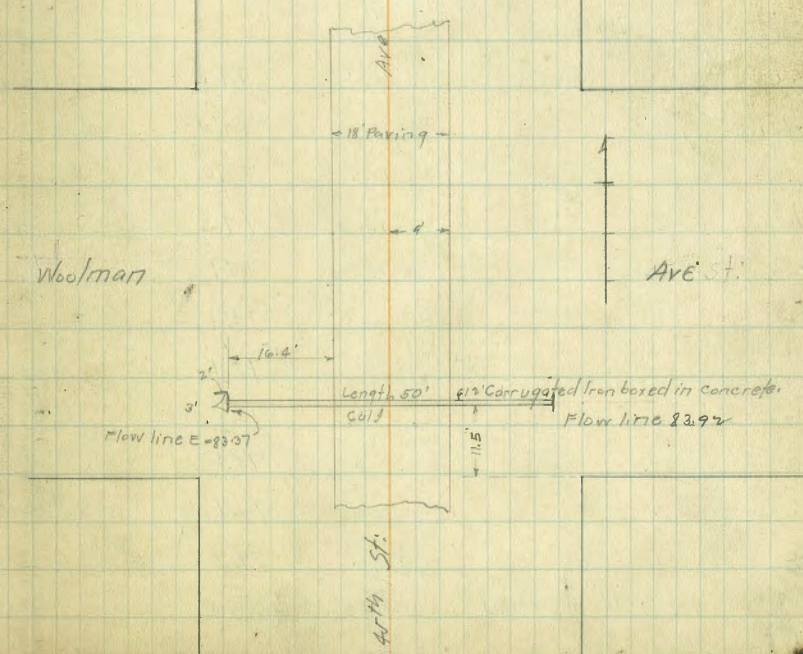 Ave
18' Paving
9'
Woolman
Ave St.
16.4'
2'
Length 50' 12" Corrugated Iron boxed in concrete.
3'
Flow line 83.92
Flow line E=83.37
11.5'
45th St.